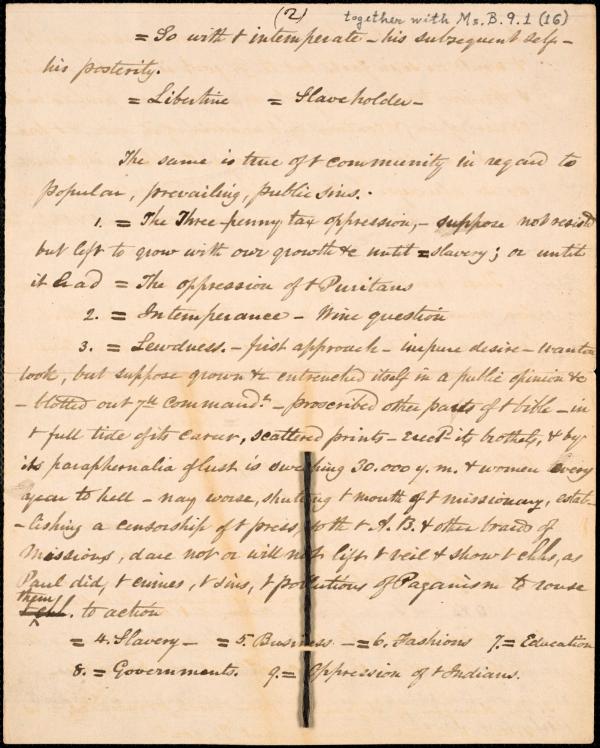 (2) together with Ms. B. 9. 1 (16)
= So with t intemperate - his subsequent self -
his posterity.
= Libertine = Slaveholder -
The same is true of t community in regard to
popular, prevailing, public sins. -
1. = The Three-penny tax oppression, - suppose not resisted
but left to grow with our growth &c until = slavery; or until
it had = The oppression of t Puritans
2. = Intemperance - Wine question
3. = Lewdness. - first approach - impure desire - wanton
look, but suppose grown & entrenched itself in a public opinion &c
- blotted out 7th Commandt. - proscribed other parts of t bible - in
t full tide of its career, scattered prints - Erectd. its brothels, & by
its paraphernalia of lust is sweeping 30.000 y. m. & women every
year to hell - nay worse, shutting t mouth of t missionary, estab-
-lishing a censorship of t press, so tht t A. B. & other boards of
Missions, dare not or will not lift t veil & show t chhs, as
Paul did, t crimes, t sins, t pollutions of Paganism to rouse
them
t chh. to action
= 4. Slavery - = 5. Business - = 6. Fashions 7. = Education
8. = Governments. 9. = Oppression of t Indians.